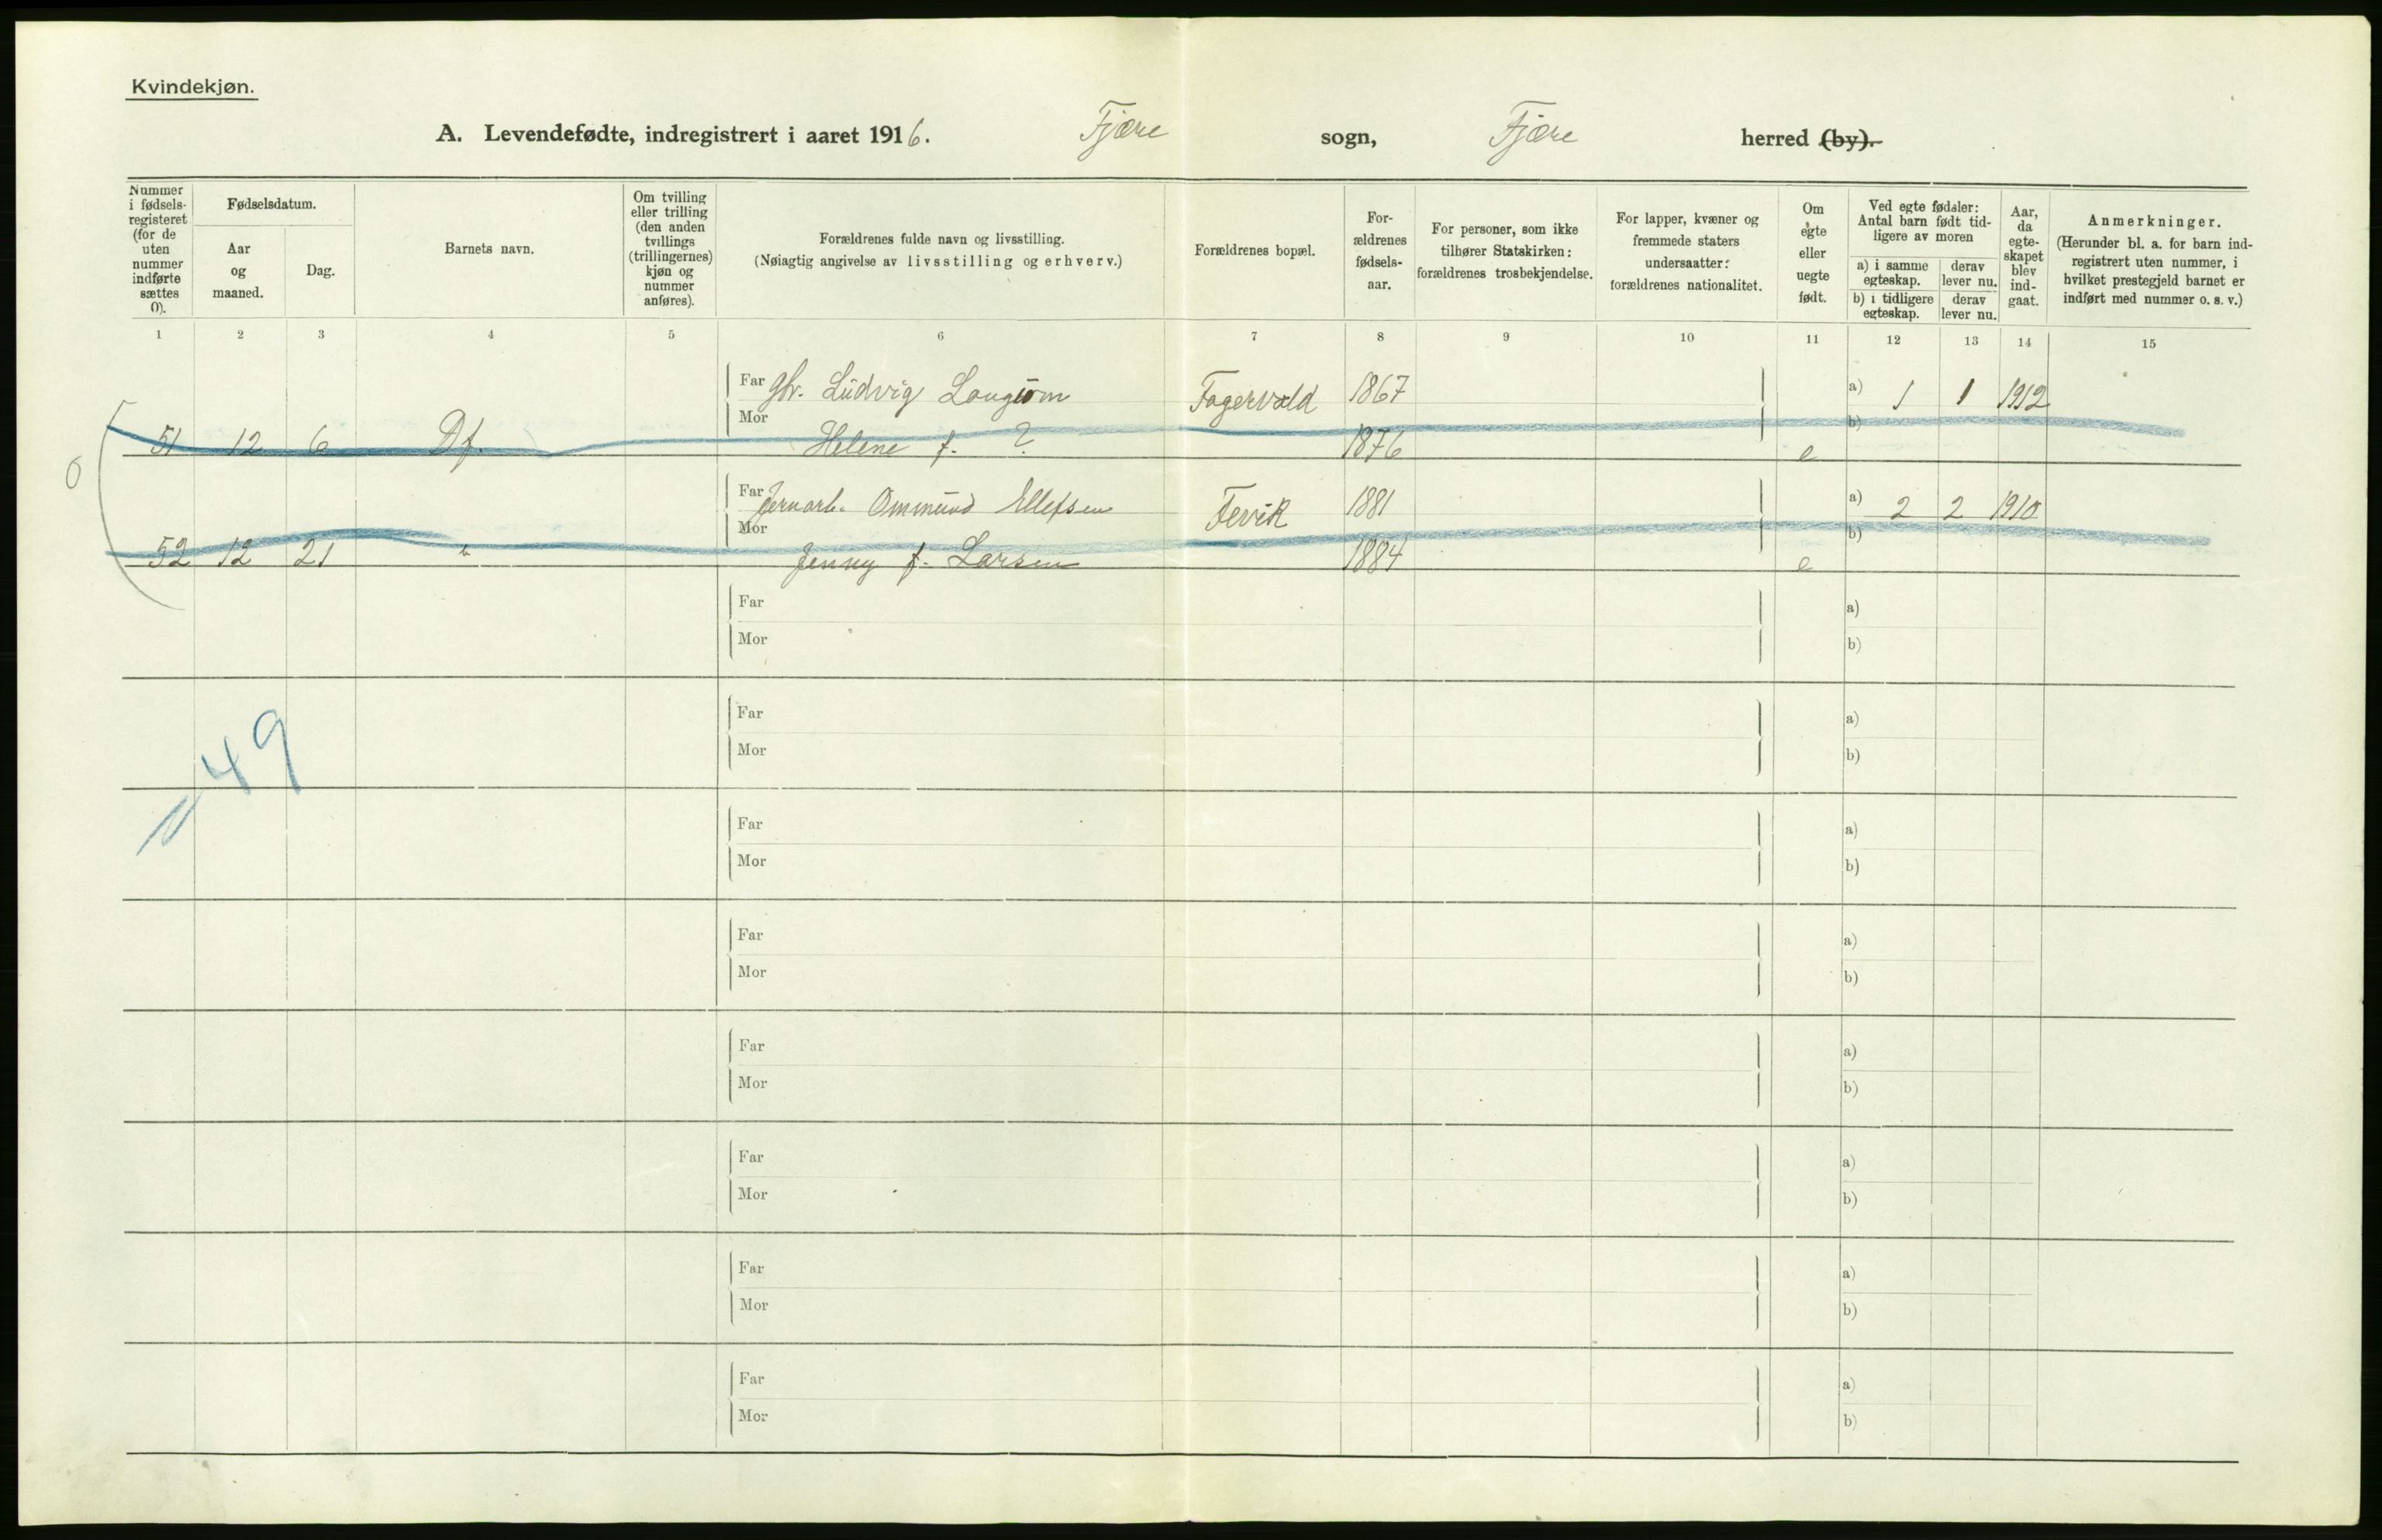 Kvindekjøn.
A. Levendefødte, indregistrert i aaret 1916. Fjære sogn, Fjære herred (by).
Nummer i fødsels-registeret (for de uten nummer indførte sættes 0).
Fødselsdatum.
Aar og maaned.
Dag.
Barnets navn.
Om tvilling eller trilling (den anden tvillings (trillingernes) kjøn og nummer anføres).
Forældrenes fulde navn og livsstilling.
(Nøiagtig angivelse av livsstilling og erhverv.)
Forældrenes bopæl.
For-ældrenes fødsels-aar.
For personer, som ikke tilhører Statskirken: forældrenes trosbekjendelse.
For lapper, kvæner og fremmede staters undersaatter: forældrenes nationalitet.
Om egte eller uegte født.
Ved egte fødsler: Antal barn født tid-ligere av moren
a) i samme egteskap.
derav lever nu.
b) i tidligere egteskap.
derav lever nu.
Aar, da egte-skapet blev ind-gaat.
Anmerkninger.
(Herunder bl. a. for barn ind-registrert uten nummer, i hvilket prestegjeld barnet er indført med nummer o. s. v.)
1 2 3 4 5 6 7 8 9 10 11 12 13 14 15
Far Ludvig Fagervold 1867 a) 1 1 1912
Mor b)
51 12 6 Df. Helene f. ? 1876 e
0
Far Jernarb. Ommund Ellefsen Fevik 1881 a) 2 2 1910
Mor b)
52 12 21 " Jenny f. Larsen 1884 e
Far a)
Mor b)
Far a)
49
Mor b)
Far a)
Mor b)
Far a)
Mor b)
Far a)
Mor b)
Far a)
Mor b)
Far a)
Mor b)
Far a)
Mor b)